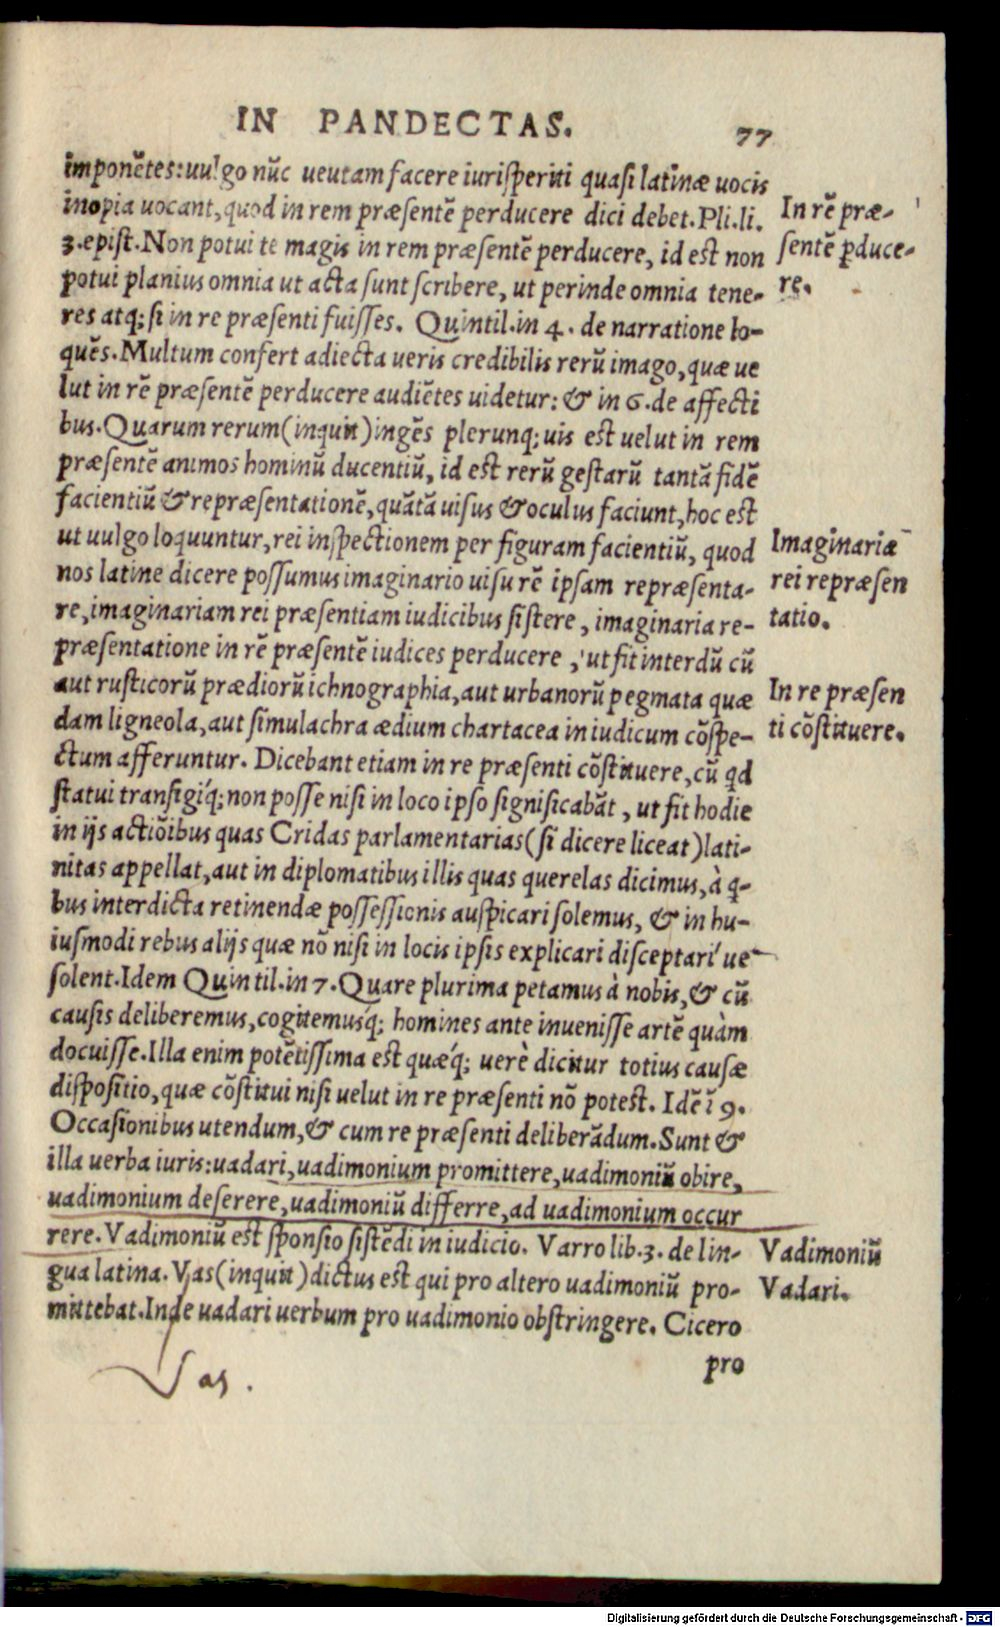 IN PANDECTAS. 77
imponẽtes: uulgo nũc ueutam facere iurisperiti quasi latinæ uocis
inopia uocant, quod in rem præsentẽ perducere dici debet. Pli. li.
3. epist. Non potui te magis in rem præsentẽ perducere, id est non
potui planius omnia ut acta sunt scribere, ut perinde omnia tene-
res atq; si in re præsenti fuisses. Quintil. in 4. de narratione lo-
quẽs. Multum confert adiecta ueris credibilis rerũ imago, quæ ue
lut in rẽ præsentẽ perducere audiẽtes uidetur: & in 6. de affecti
bus. Quarum rerum (inquit) ingẽs plerunq; uis est uelut in rem
præsentẽ animos hominũ ducentiũ, id est rerũ gestarũ tantã fidẽ
facientiũ & repræsentationẽ, quãtã uisus & oculus faciunt, hoc est
ut uulgo loquuntur, rei inspectionem per figuram facientiũ, quod
nos latine dicere possumus imaginario uisu rẽ ipsam repræsenta-
re, imaginariam rei præsentiam iudicibus sistere, imaginaria re-
præsentatione in rẽ præsentẽ iudices perducere, ut fit interdũ cũ
aut rusticorũ prædiorũ ichnographia, aut urbanorũ pegmata quæ
dam ligneola, aut simulachra ædium chartacea in iudicum cõspe-
ctum afferuntur. Dicebant etiam in re præsenti cõstituere, cũ qd
statui transigíq; non posse nisi in loco ipso significabãt, ut fit hodie
in ijs actiõibus quas Cridas parlamentarias (si dicere liceat) lati-
nitas appellat, aut in diplomatibus illis quas querelas dicimus, à q-
bus interdicta retinendæ possessionis auspicari solemus, & in hu-
iusmodi rebus alijs quæ nõ nisi in locis ipsis explicari disceptari ue
solent. Idem Quintil. in 7. Quare plurima petamus à nobis, & cũ
causis deliberemus, cogitemusq́; homines ante inuenisse artẽ quàm
docuisse. Illa enim potẽtissima est quæq́; uerè dicitur totius causæ
dispositio, quæ cõstitui nisi uelut in re præsenti nõ potest. Idẽ ĩ 9.
Occasionibus utendum, & cum re præsenti deliberãdum. Sunt &
illa uerba iuris: uadari, uadimonium promittere, uadimoniũ obire,
uadimonium deserere, uadimoniũ differre, ad uadimonium occur
rere. Vadimoniũ est sponsio sistẽdi in iudicio. Varro lib. 3. de lin-
gua latina. Vas (inquit) dictus est qui pro altero uadimoniũ pro-
mittebat. Inde uadari uerbum pro uadimonio obstringere. Cicero
pro
In rẽ præ-
sentẽ ꝑduce-
re.
Imaginaria
rei repræsen
tatio.
In re præsen
ti cõstituere.
Vadimoniũ
Vadari.
Vas.
Digitalisierung gefördert durch die Deutsche Forschungsgemeinschaft - DFG